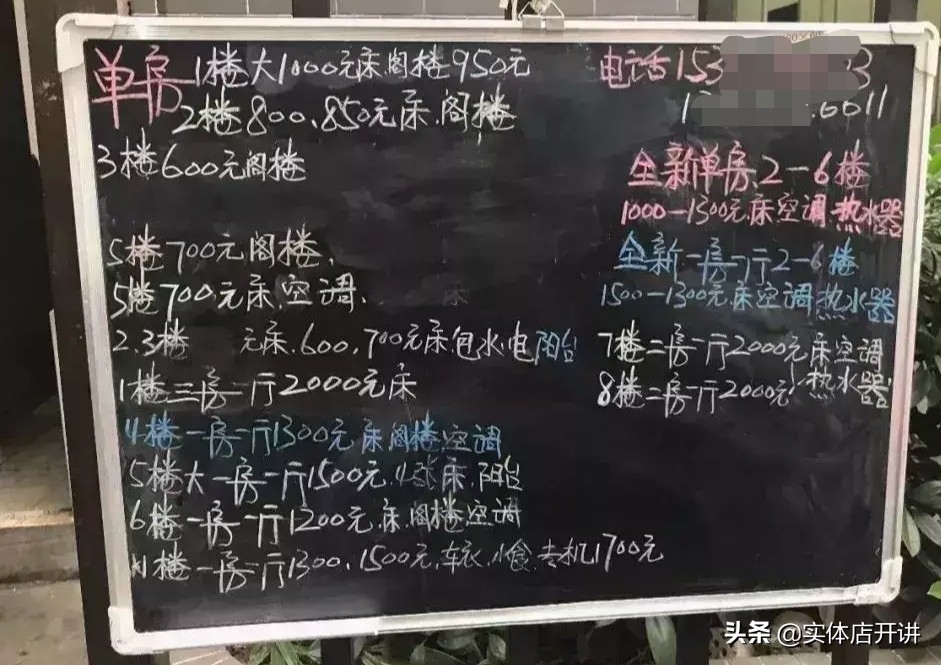 单房 1楼大1000元床阁楼950元
2楼800、850元床.阁楼
3楼600元阁楼
5楼700元阁楼、
5楼700元床.空调、
2.3楼 元床.600、700元床包水电阳台
1楼三房一厅2000元床
4楼一房一厅1300元床阁楼空调
5楼大一房一厅1500元.4张床.阳台
6楼一房一厅1200元.床.阁楼空调
1楼一房一厅1300、1500元.车衣.小食.专机1700元
电话153 3
1 .0011
全新单房2-6楼
1000-1300元床空调热水器
全新一房一厅2-6楼
1500-1300元.床空调热水器
7楼二房一厅2000元床空调
8楼二房一厅2000元!热水器
头条 @实体店开讲